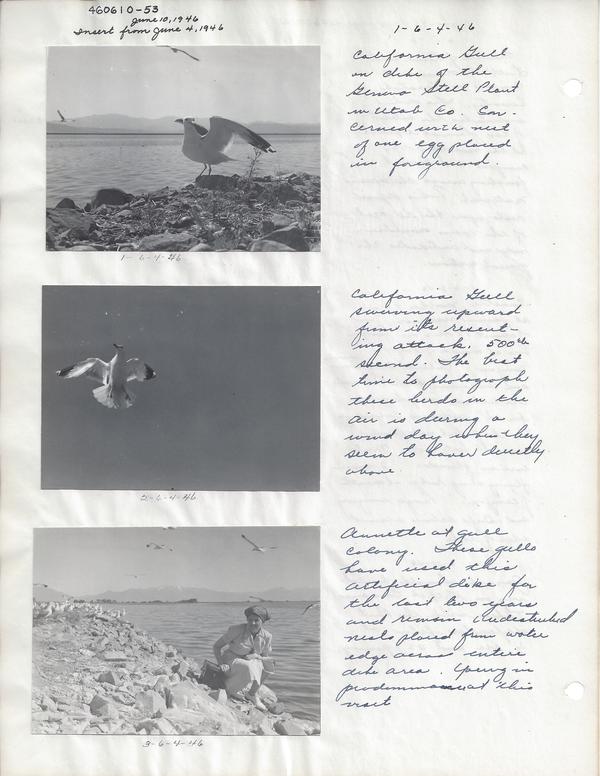 460610-53
June 10, 1946
Insert from June 4, 1946
1-6-4-46
California Gull
on dike of the
Geneva Stell Plant
in Utah Co. Con-
cerned with nest
of one egg placed
in foreground.
1-6-4-46
California Gull
swerving upward
from its resent-
ing attack. 500th
second. The best
time to photograph
these birds in the
air is during a
wind day when they
seem to hover directly
above.
2-6-4-46
Annette at gull
colony. These gulls
have used this
artificial dike for
the last two years
and remain undisturbed
nests placed from water
edge across entire
dike area. Young in
at this
visit
3-6-4-46